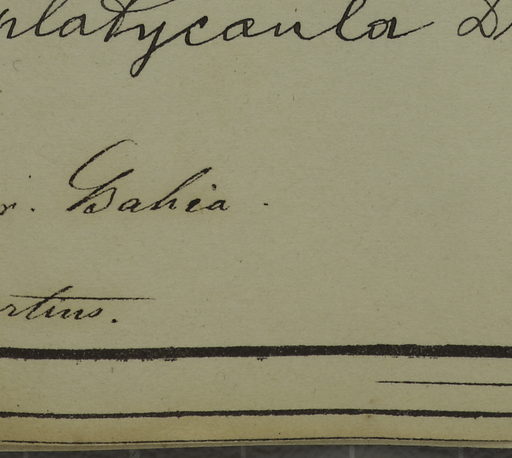 platycaula
r. Bahia.
rtius.